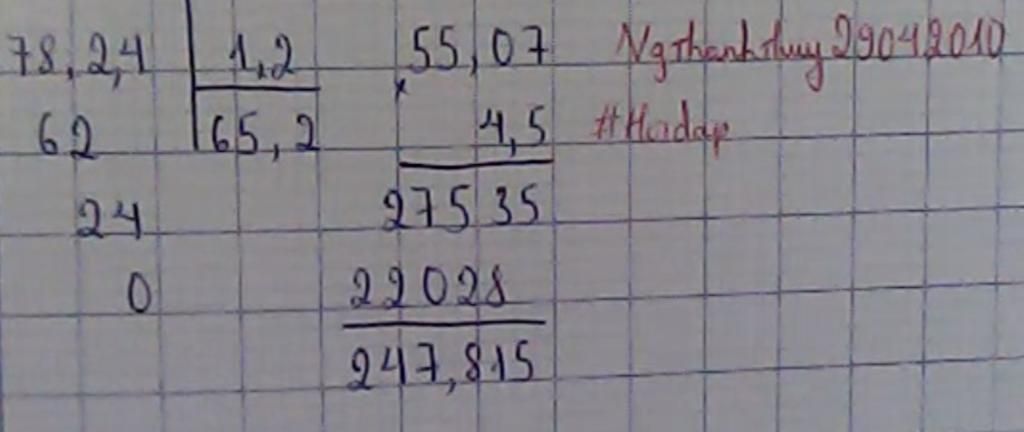 78,2,4 1,2 55,07 Ngthanhthuy29042010
62 65,2 × 4,5 #Hoidap
24 27535
0 22028
247,815